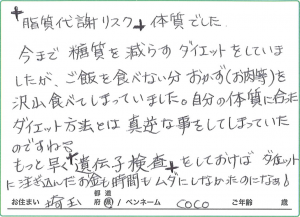 脂質代謝リスク 体質でした
今まで糖質を減らすダイエットをしていま
したが、ご飯を食べない分おかず(お肉等)を
沢山食べてしまっていました。自分の体質に合った
ダイエット方法とは真逆な事をしてしまっていた
のですね
もっと早く遺伝子検査をしておけばダイエット
に注ぎ込んだお金も時間もムダにしなかったのになぁ!
お住まい 埼玉 都道府県 / ペンネーム COCO ご年齢 歳